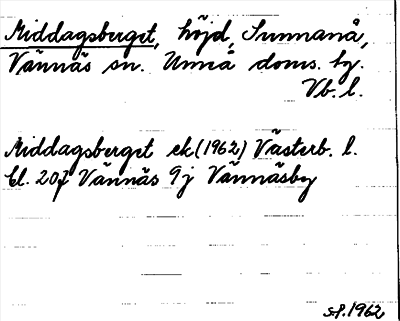 Middagsberget, höjd, Sunnanå,
Vännäs sn. Umeå doms. hg.
Vb. l.
Middagsberget ek (1962) Västerb. l.
bl. 20J Vännäs 9j Vännäsby
1962